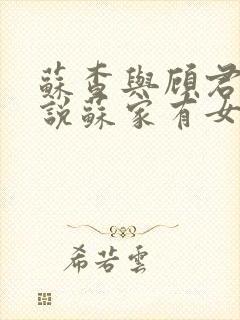 蘇杳與顧君
說蘇家有女
希若雲